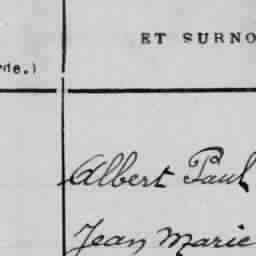 ET SURNO
de.)
Albert Paul
Jean Marie